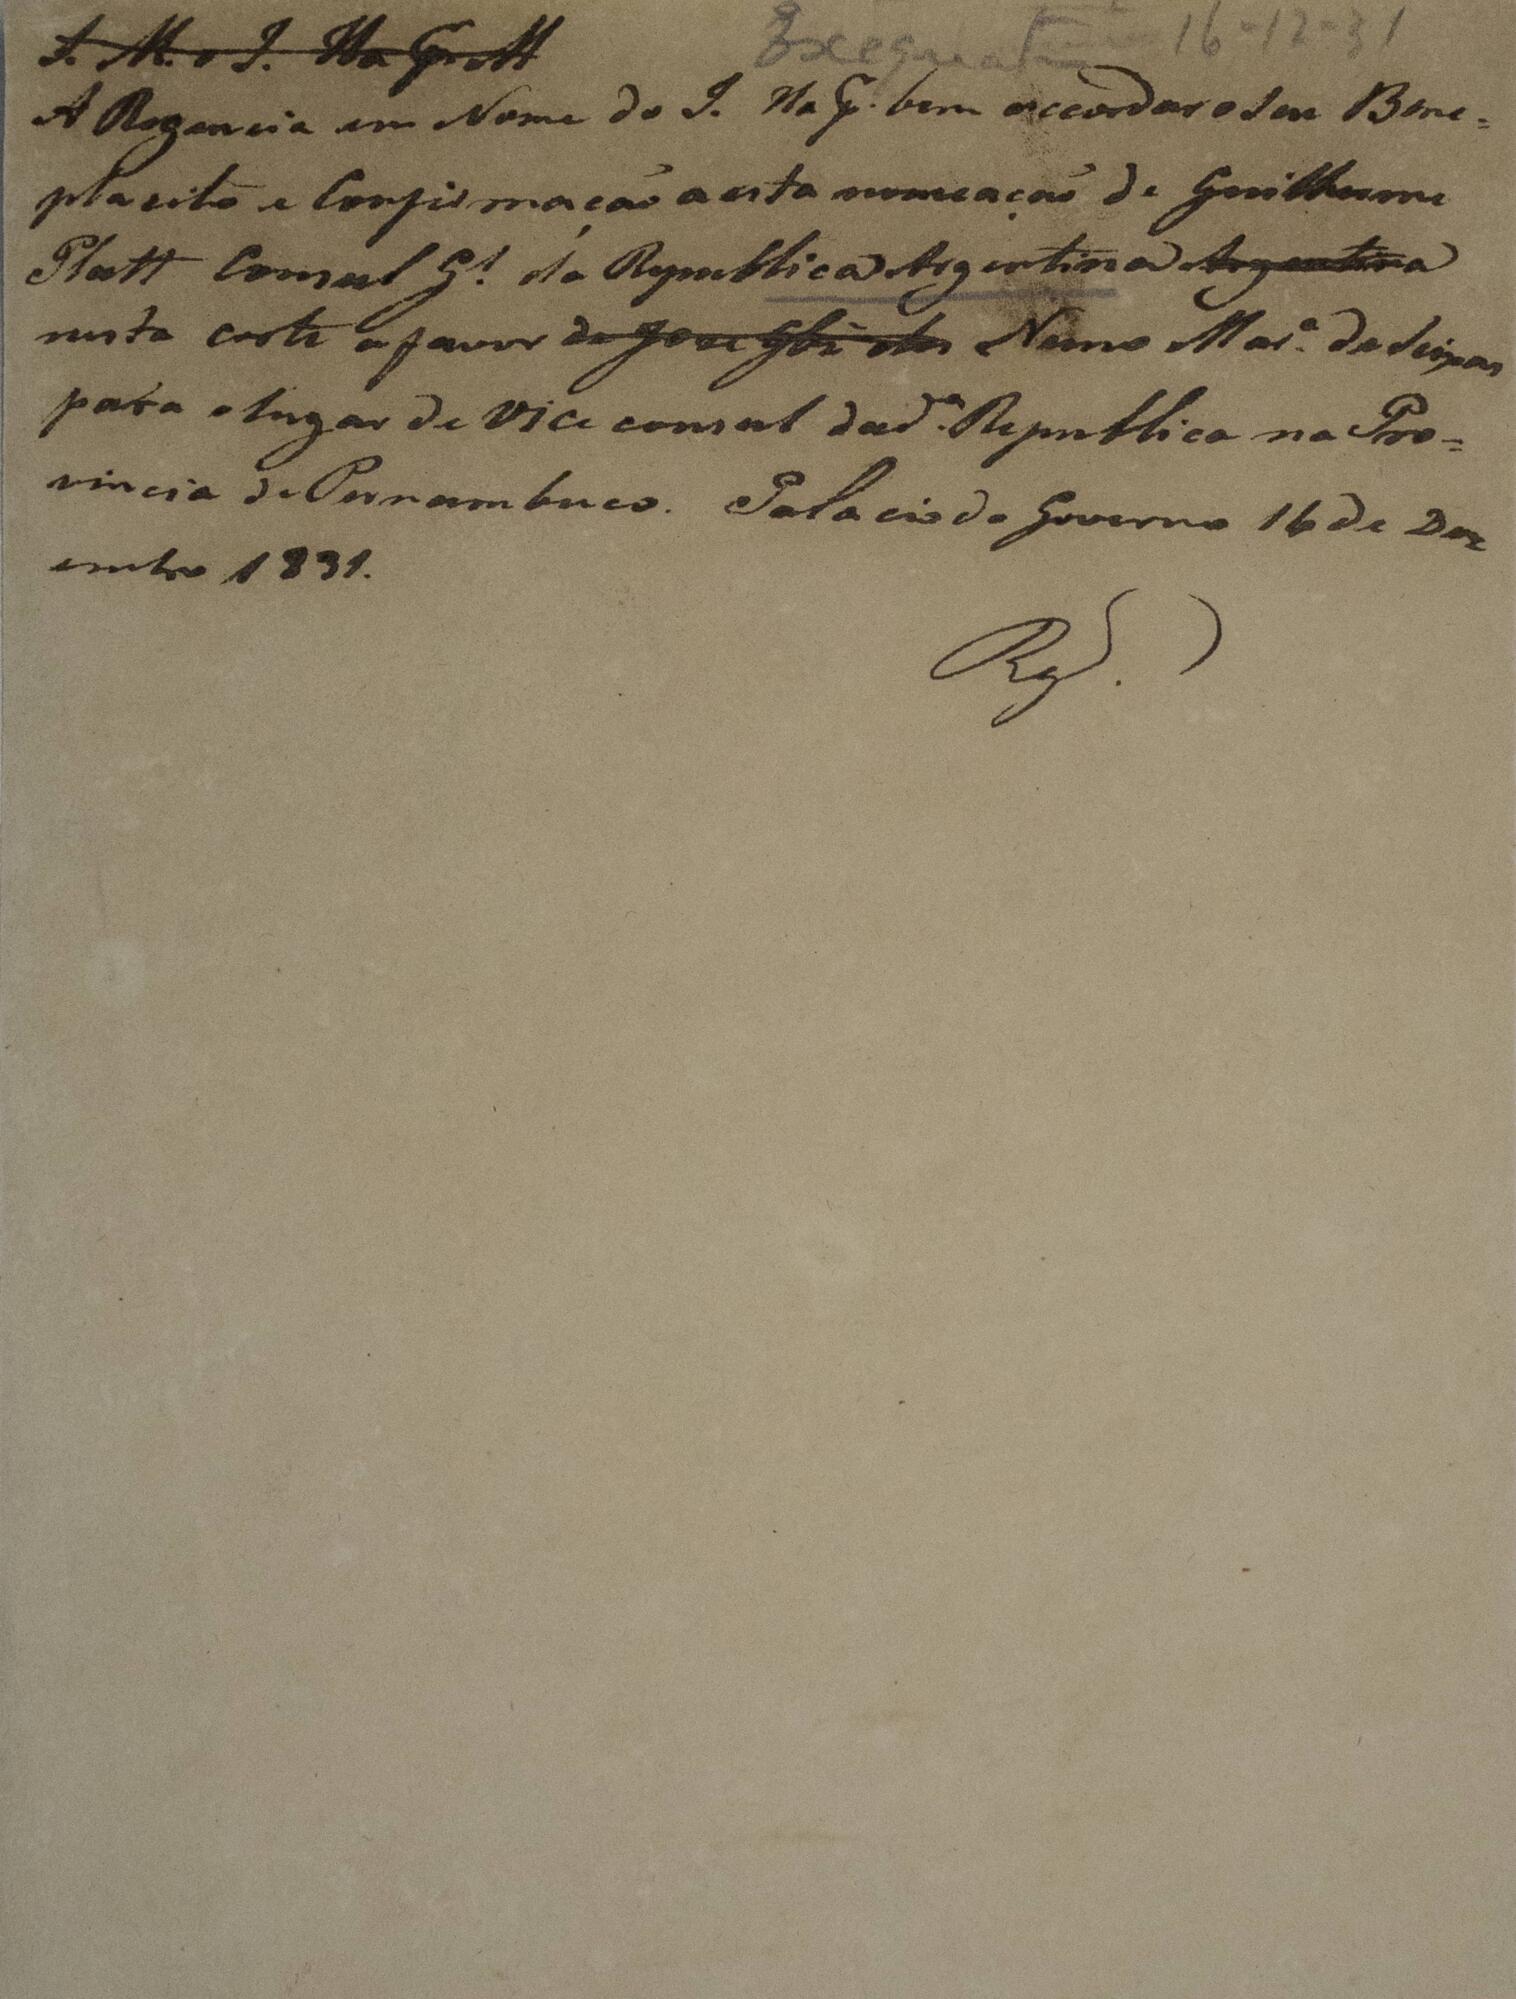 Exequatur 16-12-31
S. M. o I. Ha
A Regencia em Nome do I. Ha p. bem accordar o seu Bene=
placito e Confirmação a esta nomeação de Guilherme
Platt Consul G.l da Republica Argentina Argentina
nesta corte a favor de Jose Nuno Mar.a de Seixas
para o lugar de Vice consul da d.a Republica na Pro=
vincia de Pernambuco. Palacio do Governo 16 de Dez
embro 1831.